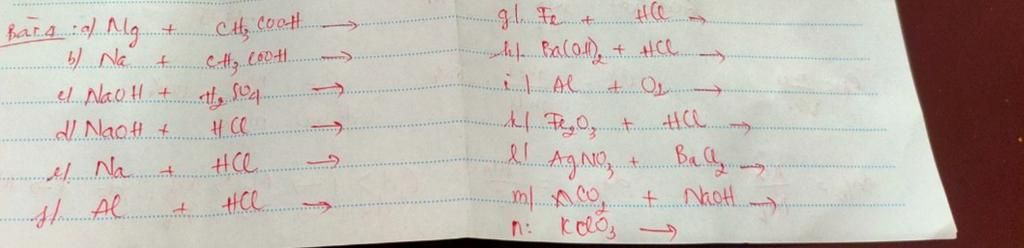 Bài 4 : a) Mg + CH3COOH →
b) Na + CH3COOH →
c) NaOH + H2SO4 →
d) NaOH + HCl →
e). Na + HCl →
f). Al + HCl →
g). Fe + HCl →
h) Ba(OH)2 + HCl →
i) Al + O2 →
k) Fe2O3 + HCl →
l) AgNO3 + BaCl2 →
m) CO2 + NaOH →
n: KClO3 →